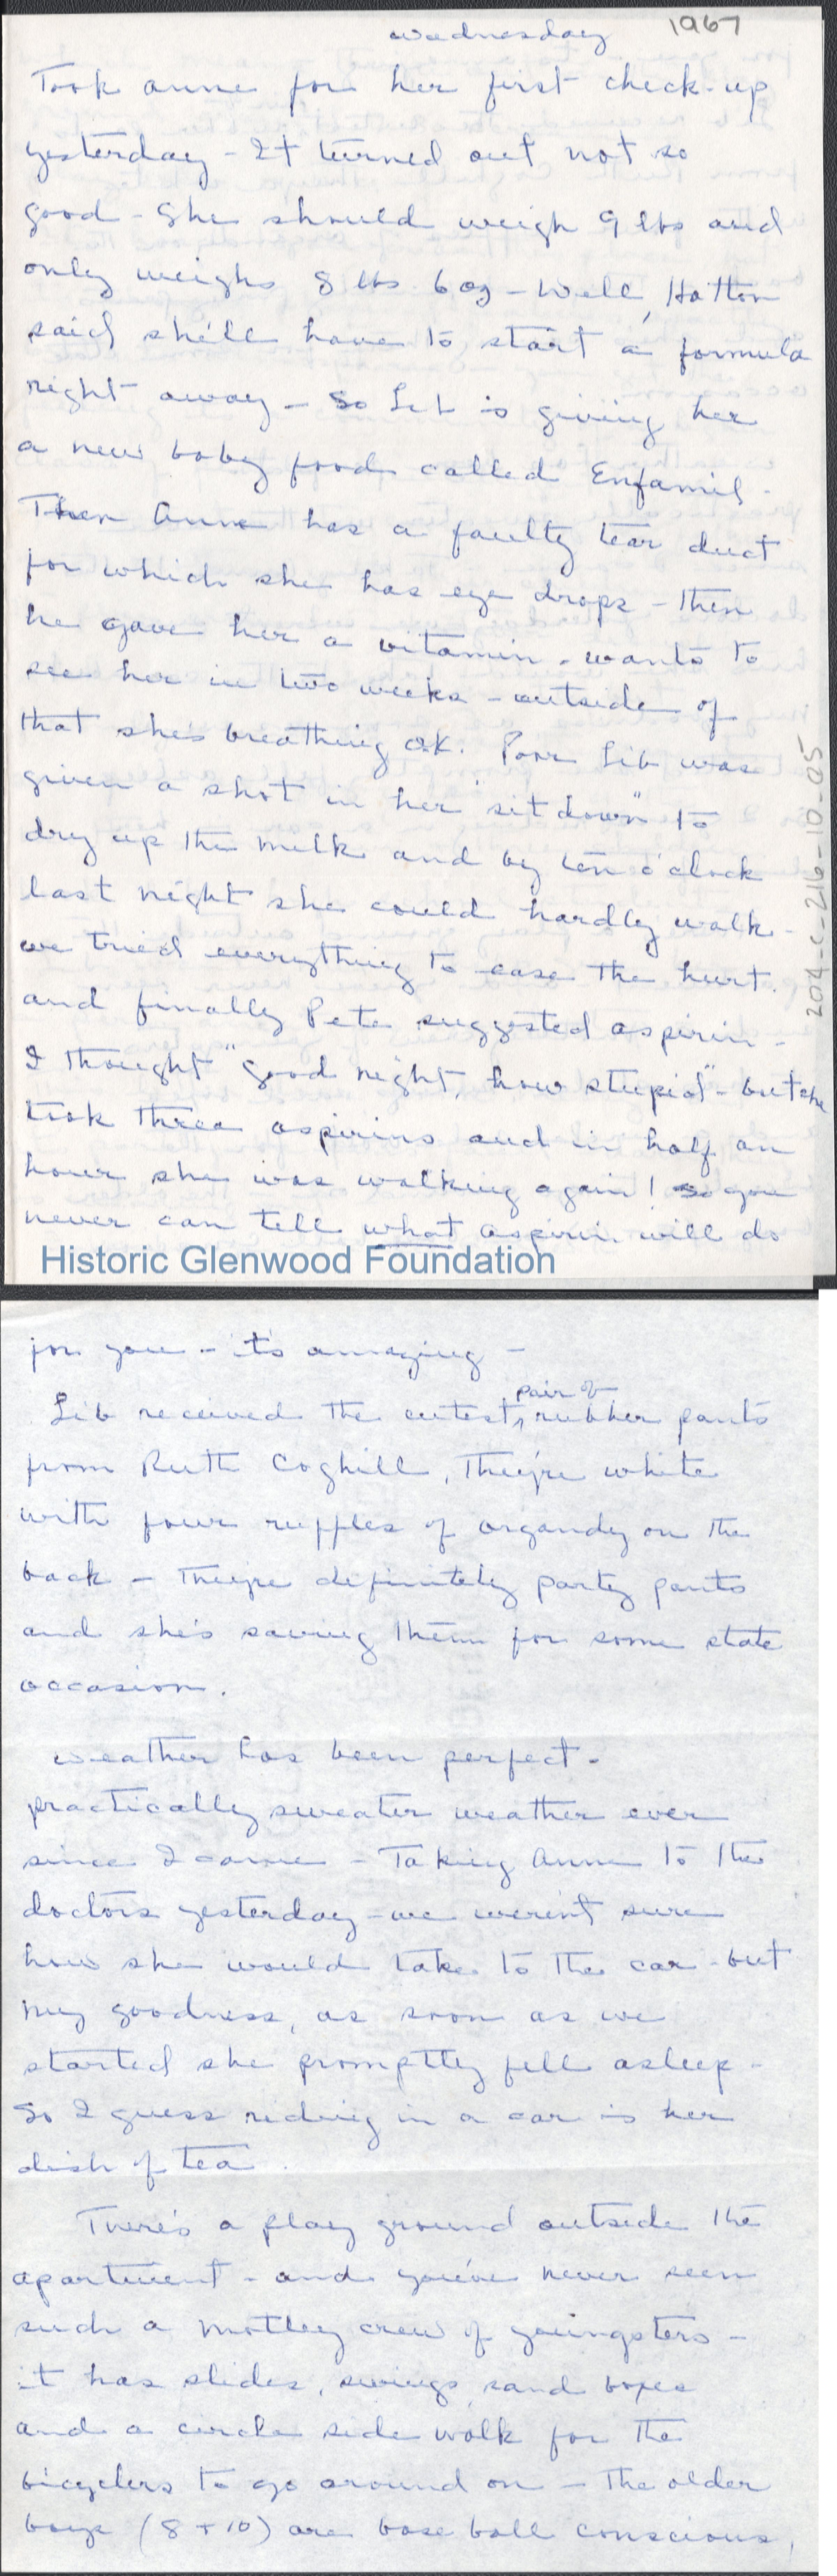 Wednesday 1967
Took Anne for her first check-up
yesterday - It turned out not so
good - She should weigh 9 lbs and
only weighs 8 lbs 6 oz - Well, Hatton
said she'll have to start a formula
right away - So Lib is giving her
a new baby food called Enfamil -
Then Anne has a faulty tear duct
for which she has eye drops - then
he gave her a vitamin - wants to
see her in two weeks - outside of
that she's breathing OK. Poor Lib was
given a shot in her "sit down" to
dry up the milk and by ten o'clock
last night she could hardly walk -
we tried everything to ease the hurt.
and finally Pete suggested aspirin -
I thought "good night, how stupid" - but she
took three aspirins and in half an
hour she was walking again! So you
never can tell what aspirin will do
204-c-216-10-05
Historic Glenwood Foundation
for you - it's amazing -
Lib received the cutest pair of rubber pants
from Ruth Coghill, They're white
with four ruffles of organdy on the
back - They're definitely party pants
and she's saving them for some state
occasion.
Weather has been perfect -
practically sweater weather ever
since I came - Taking Anne to the
doctors yesterday - we weren't sure
how she would take to the car - but
my goodness, as soon as we
started she promptly fell asleep -
So I guess riding in a car is her
dish of tea.
There's a play ground outside the
apartment - and you've never seen
such a motley crew of youngsters -
it has slides, swings, sand boxes
and a circle side walk for the
bicyclers to go around on - The older
boys (8 + 10) are base ball conscious,